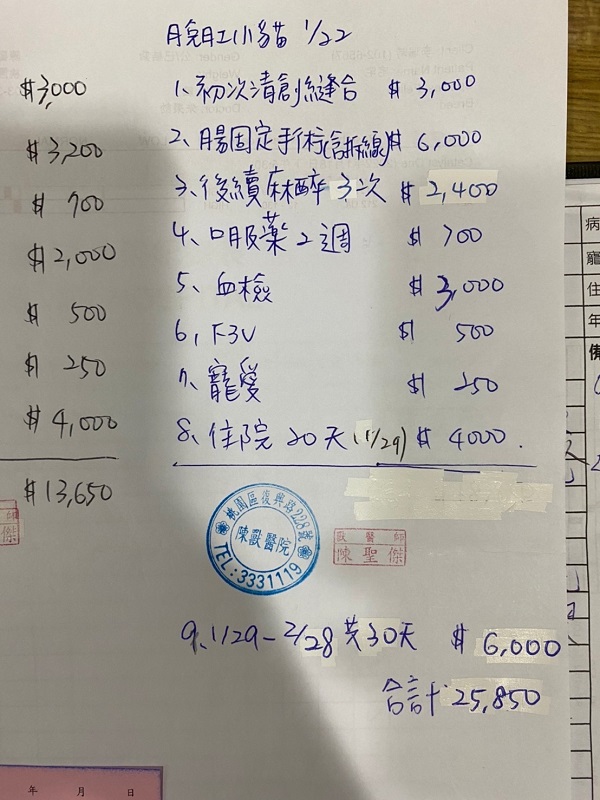 脫肛小貓 1/22
1、初次清創縫合 $3,000
2、腸固定手術(含拆線)$6,000
3、後續麻醉3次 $2,400
4、口服藥2週 $700
5、血檢 $3,000
6、F3V $500
7、寵愛 $250
8、住院20天(1/29) $4000.
桃園區復興路228號
陳獸醫院
TEL:3331119
獸醫師
陳聖傑
9、1/29-2/28共30天 $6,000
合計 25,850
$3,000
$3,200
$700
$2,000
$500
$250
$4,000
$13,650
師
傑
病
寵
住
年
備
年 月 日